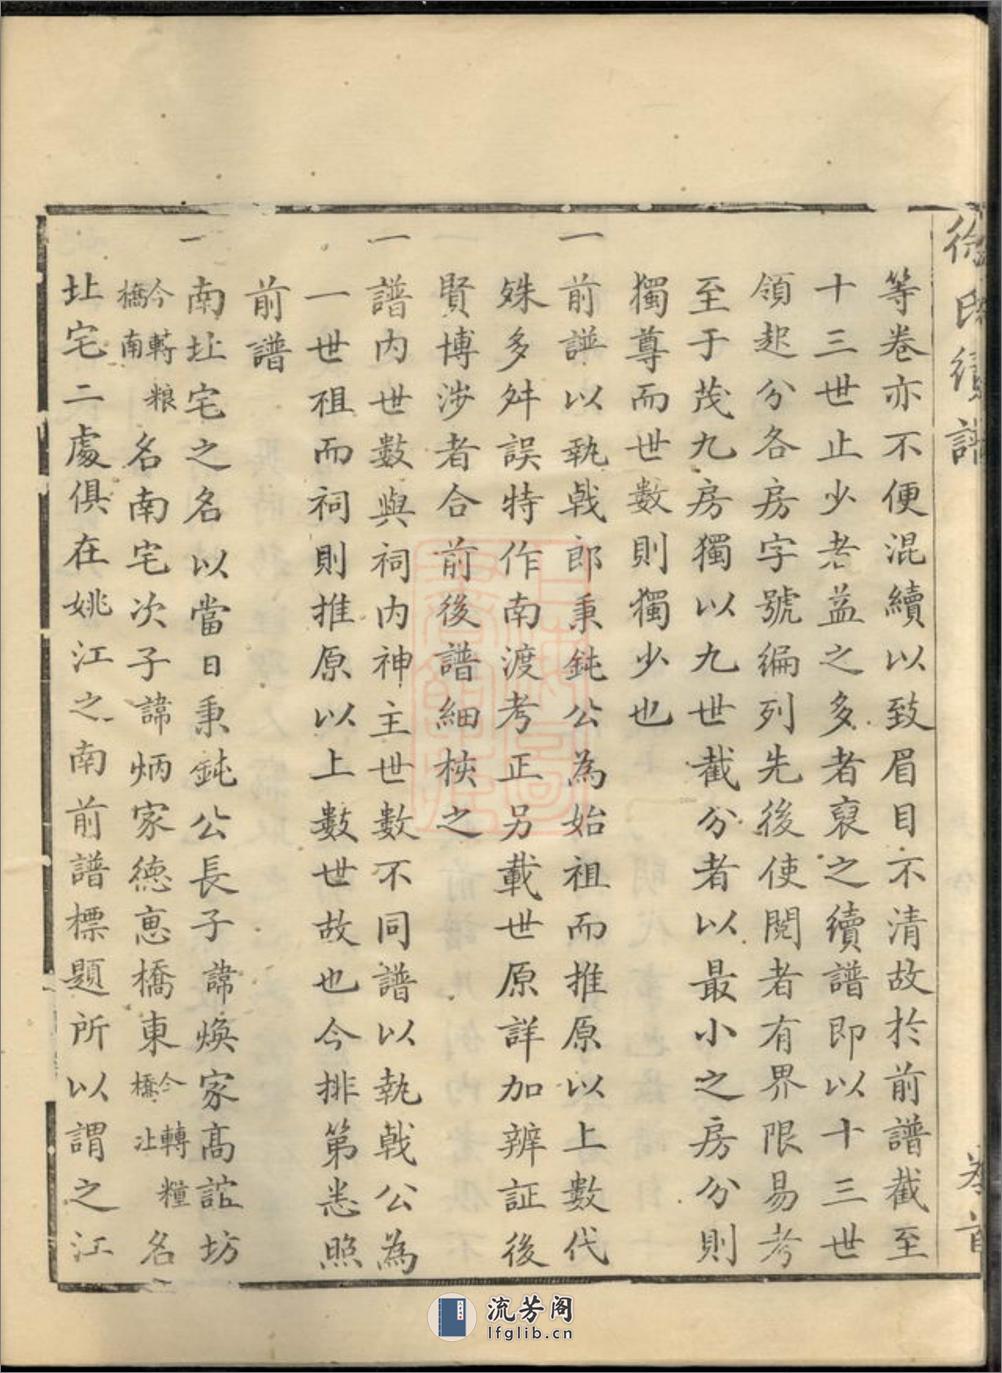 徐氏續譜
卷首
等卷亦不便混續以致眉目不清故於前譜截至
十三世止少者益之多者裒之續譜即以十三世
領起分各房字號編列先後使閱者有界限易考
至于茂九房獨以九世截分者以最小之房分則
獨尊而世數則獨少也
一前譜以執戟郎秉鈍公為始祖而推原以上數代
殊多舛誤特作南渡考正另載世原詳加辨証後
賢博涉者合前後譜細核之
一譜內世數與祠內神主世數不同譜以執戟公為
一世祖而祠則推原以上數世故也今排第悉照
前譜
一南北宅之名以當日秉鈍公長子諱煥家高誼坊
今轉糧橋南名南宅次子諱炳家德惠橋東今轉糧橋北名
北宅二處俱在姚江之南前譜標題所以謂之江
流芳阁
lfglib.cn